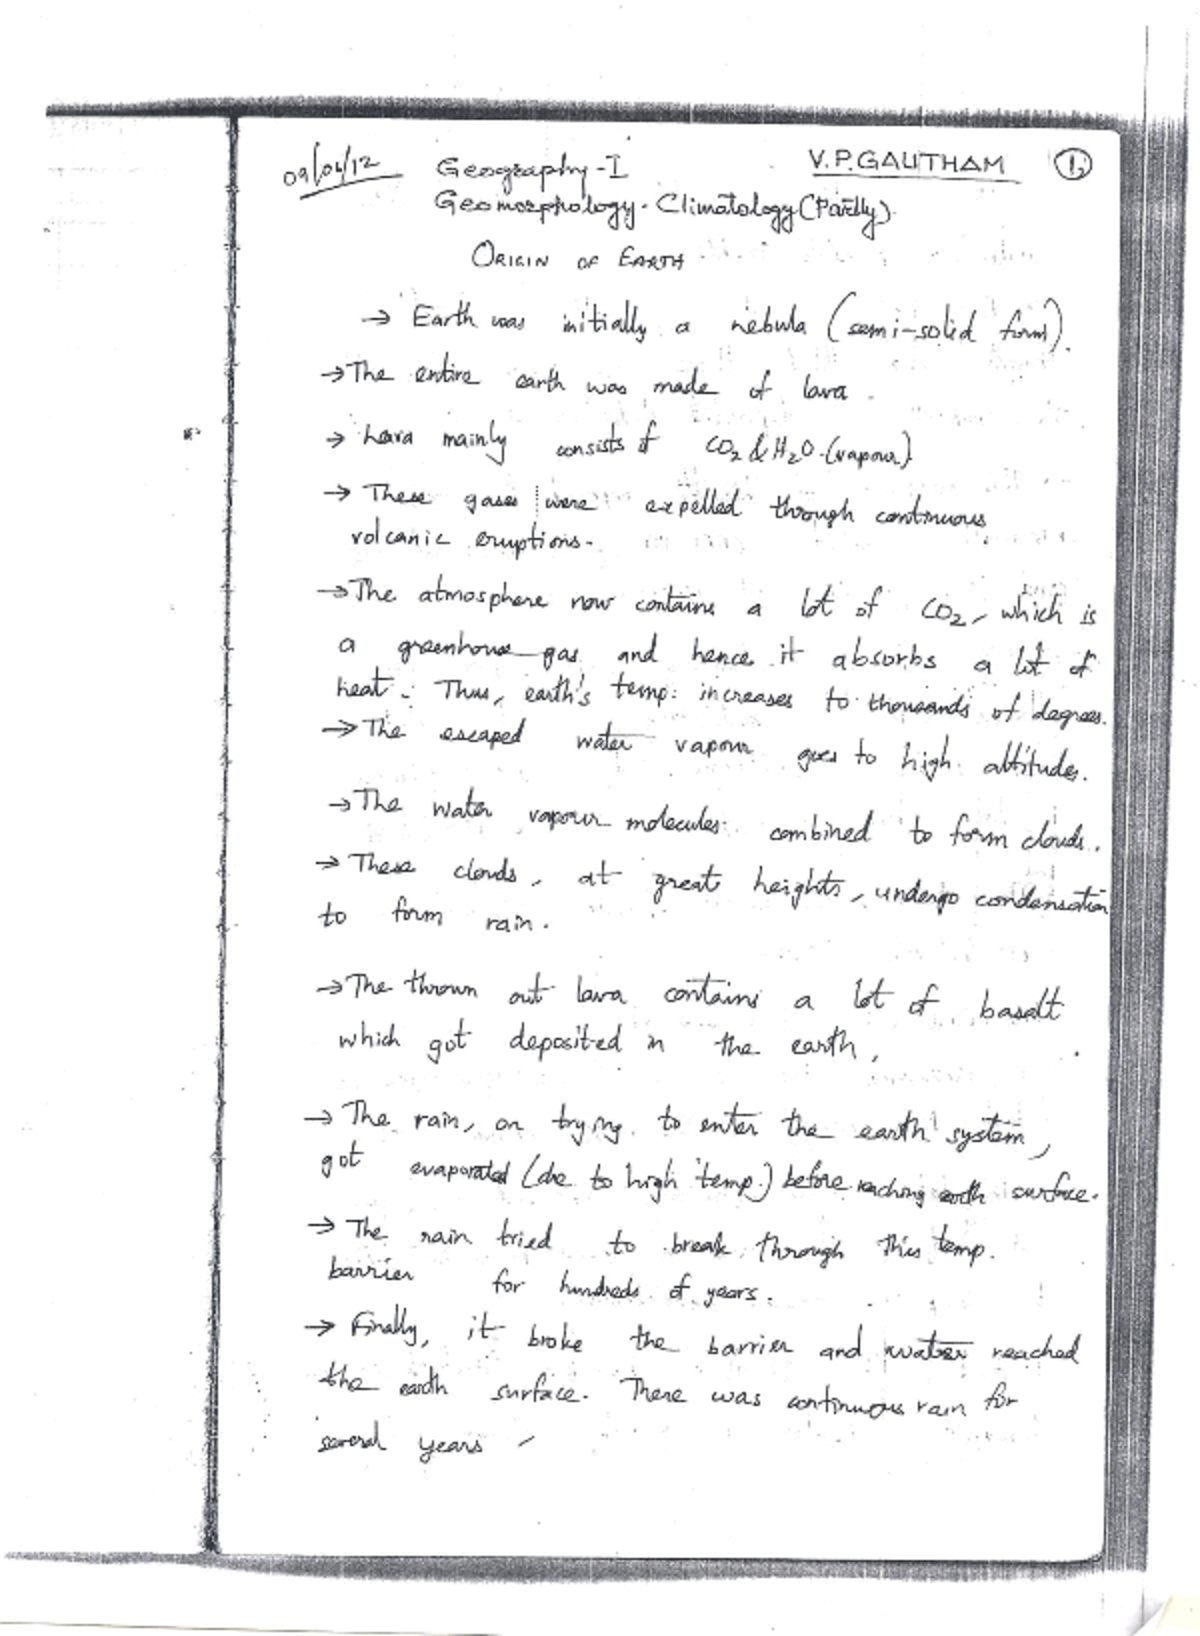 09/04/12 Geography-I V.P.GAUTHAM 1,
Geomorphology - Climatology (Partly).
ORIGIN OF EARTH
→ Earth was initially a nebula (semi-solid form).
→ The entire earth was made of lava.
→ Lava mainly consists of CO2 & H2O (vapour)
→ These gases were expelled through continuous
volcanic eruptions.
→ The atmosphere now contains a lot of CO2, which is
a greenhouse gas and hence it absorbs a lot of
heat. Thus, earth's temp. increases to thousands of degrees.
→ The escaped water vapour goes to high altitudes.
→ The water vapour molecules combined to form clouds.
→ These clouds, at great heights, undergo condensation
to form rain.
→ The thrown out lava contains a lot of basalt
which got deposited in the earth.
→ The rain, on trying to enter the earth system,
got evaporated (due to high temp.) before reaching earth surface.
→ The rain tried to break through this temp.
barrier for hundreds of years.
→ Finally, it broke the barrier and water reached
the earth surface. There was continuous rain for
several years